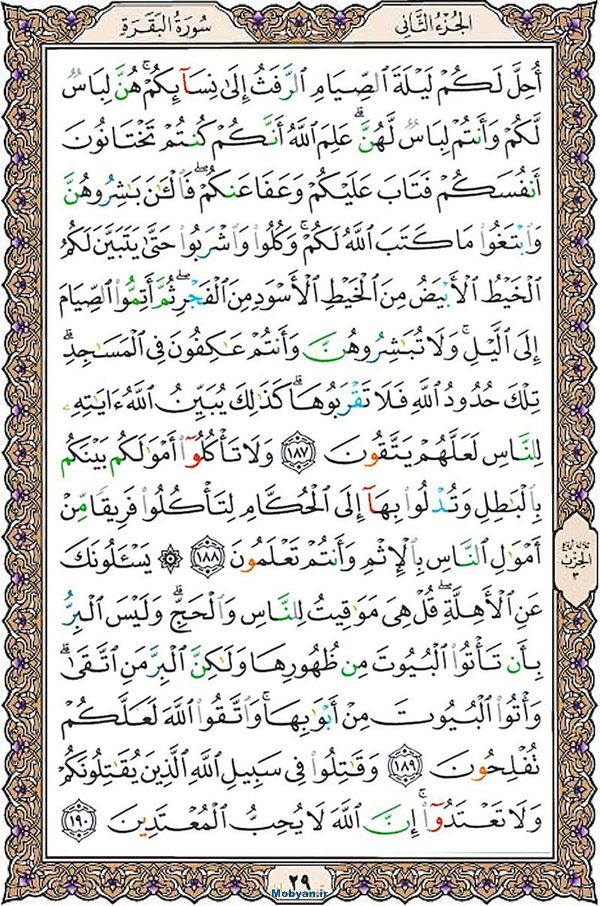 سُورَةُ الْبَقَرَةِ
الجُزءُ الثَّانِى
أُحِلَّ لَكُمۡ لَيۡلَةَ ٱلصِّيَامِ ٱلرَّفَثُ إِلَىٰ نِسَآئِكُمۡۚ هُنَّ لِبَاسٞ
لَّكُمۡ وَأَنتُمۡ لِبَاسٞ لَّهُنَّۗ عَلِمَ ٱللَّهُ أَنَّكُمۡ كُنتُمۡ تَخۡتَانُونَ
أَنفُسَكُمۡ فَتَابَ عَلَيۡكُمۡ وَعَفَا عَنكُمۡۖ فَٱلۡـَٰٔنَ بَٰشِرُوهُنَّ
وَٱبۡتَغُواْ مَا كَتَبَ ٱللَّهُ لَكُمۡۚ وَكُلُواْ وَٱشۡرَبُواْ حَتَّىٰ يَتَبَيَّنَ لَكُمُ
ٱلۡخَيۡطُ ٱلۡأَبۡيَضُ مِنَ ٱلۡخَيۡطِ ٱلۡأَسۡوَدِ مِنَ ٱلۡفَجۡرِۖ ثُمَّ أَتِمُّواْ ٱلصِّيَامَ
إِلَى ٱلَّيۡلِۚ وَلَا تُبَٰشِرُوهُنَّ وَأَنتُمۡ عَٰكِفُونَ فِي ٱلۡمَسَٰجِدِۗ
تِلۡكَ حُدُودُ ٱللَّهِ فَلَا تَقۡرَبُوهَاۗ كَذَٰلِكَ يُبَيِّنُ ٱللَّهُ ءَايَٰتِهِۦ
لِلنَّاسِ لَعَلَّهُمۡ يَتَّقُونَ ١٨٧ وَلَا تَأۡكُلُوٓاْ أَمۡوَٰلَكُم بَيۡنَكُم
بِٱلۡبَٰطِلِ وَتُدۡلُواْ بِهَآ إِلَى ٱلۡحُكَّامِ لِتَأۡكُلُواْ فَرِيقٗا مِّنۡ
أَمۡوَٰلِ ٱلنَّاسِ بِٱلۡإِثۡمِ وَأَنتُمۡ تَعۡلَمُونَ ١٨٨ ۞ يَسۡـَٔلُونَكَ
عَنِ ٱلۡأَهِلَّةِۖ قُلۡ هِيَ مَوَٰقِيتُ لِلنَّاسِ وَٱلۡحَجِّۗ وَلَيۡسَ ٱلۡبِرُّ
بِأَن تَأۡتُواْ ٱلۡبُيُوتَ مِن ظُهُورِهَا وَلَٰكِنَّ ٱلۡبِرَّ مَنِ ٱتَّقَىٰۗ
وَأۡتُواْ ٱلۡبُيُوتَ مِنۡ أَبۡوَٰبِهَاۚ وَٱتَّقُواْ ٱللَّهَ لَعَلَّكُمۡ
تُفۡلِحُونَ ١٨٩ وَقَٰتِلُواْ فِي سَبِيلِ ٱللَّهِ ٱلَّذِينَ يُقَٰتِلُونَكُمۡ
وَلَا تَعۡتَدُوٓاْۚ إِنَّ ٱللَّهَ لَا يُحِبُّ ٱلۡمُعۡتَدِينَ ١٩٠
الحِزْب
٣
٢٩
Mobyan.ir